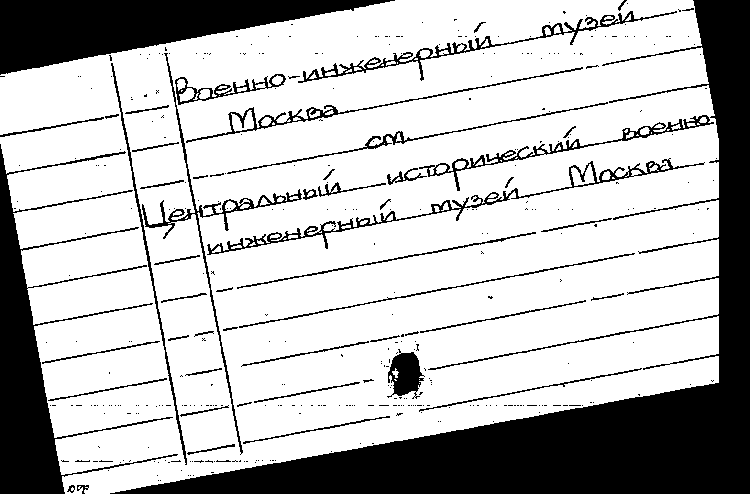 Военно-инженерный музей
Москва
см.
Центральный исторический военно-
инженерный музей Москва